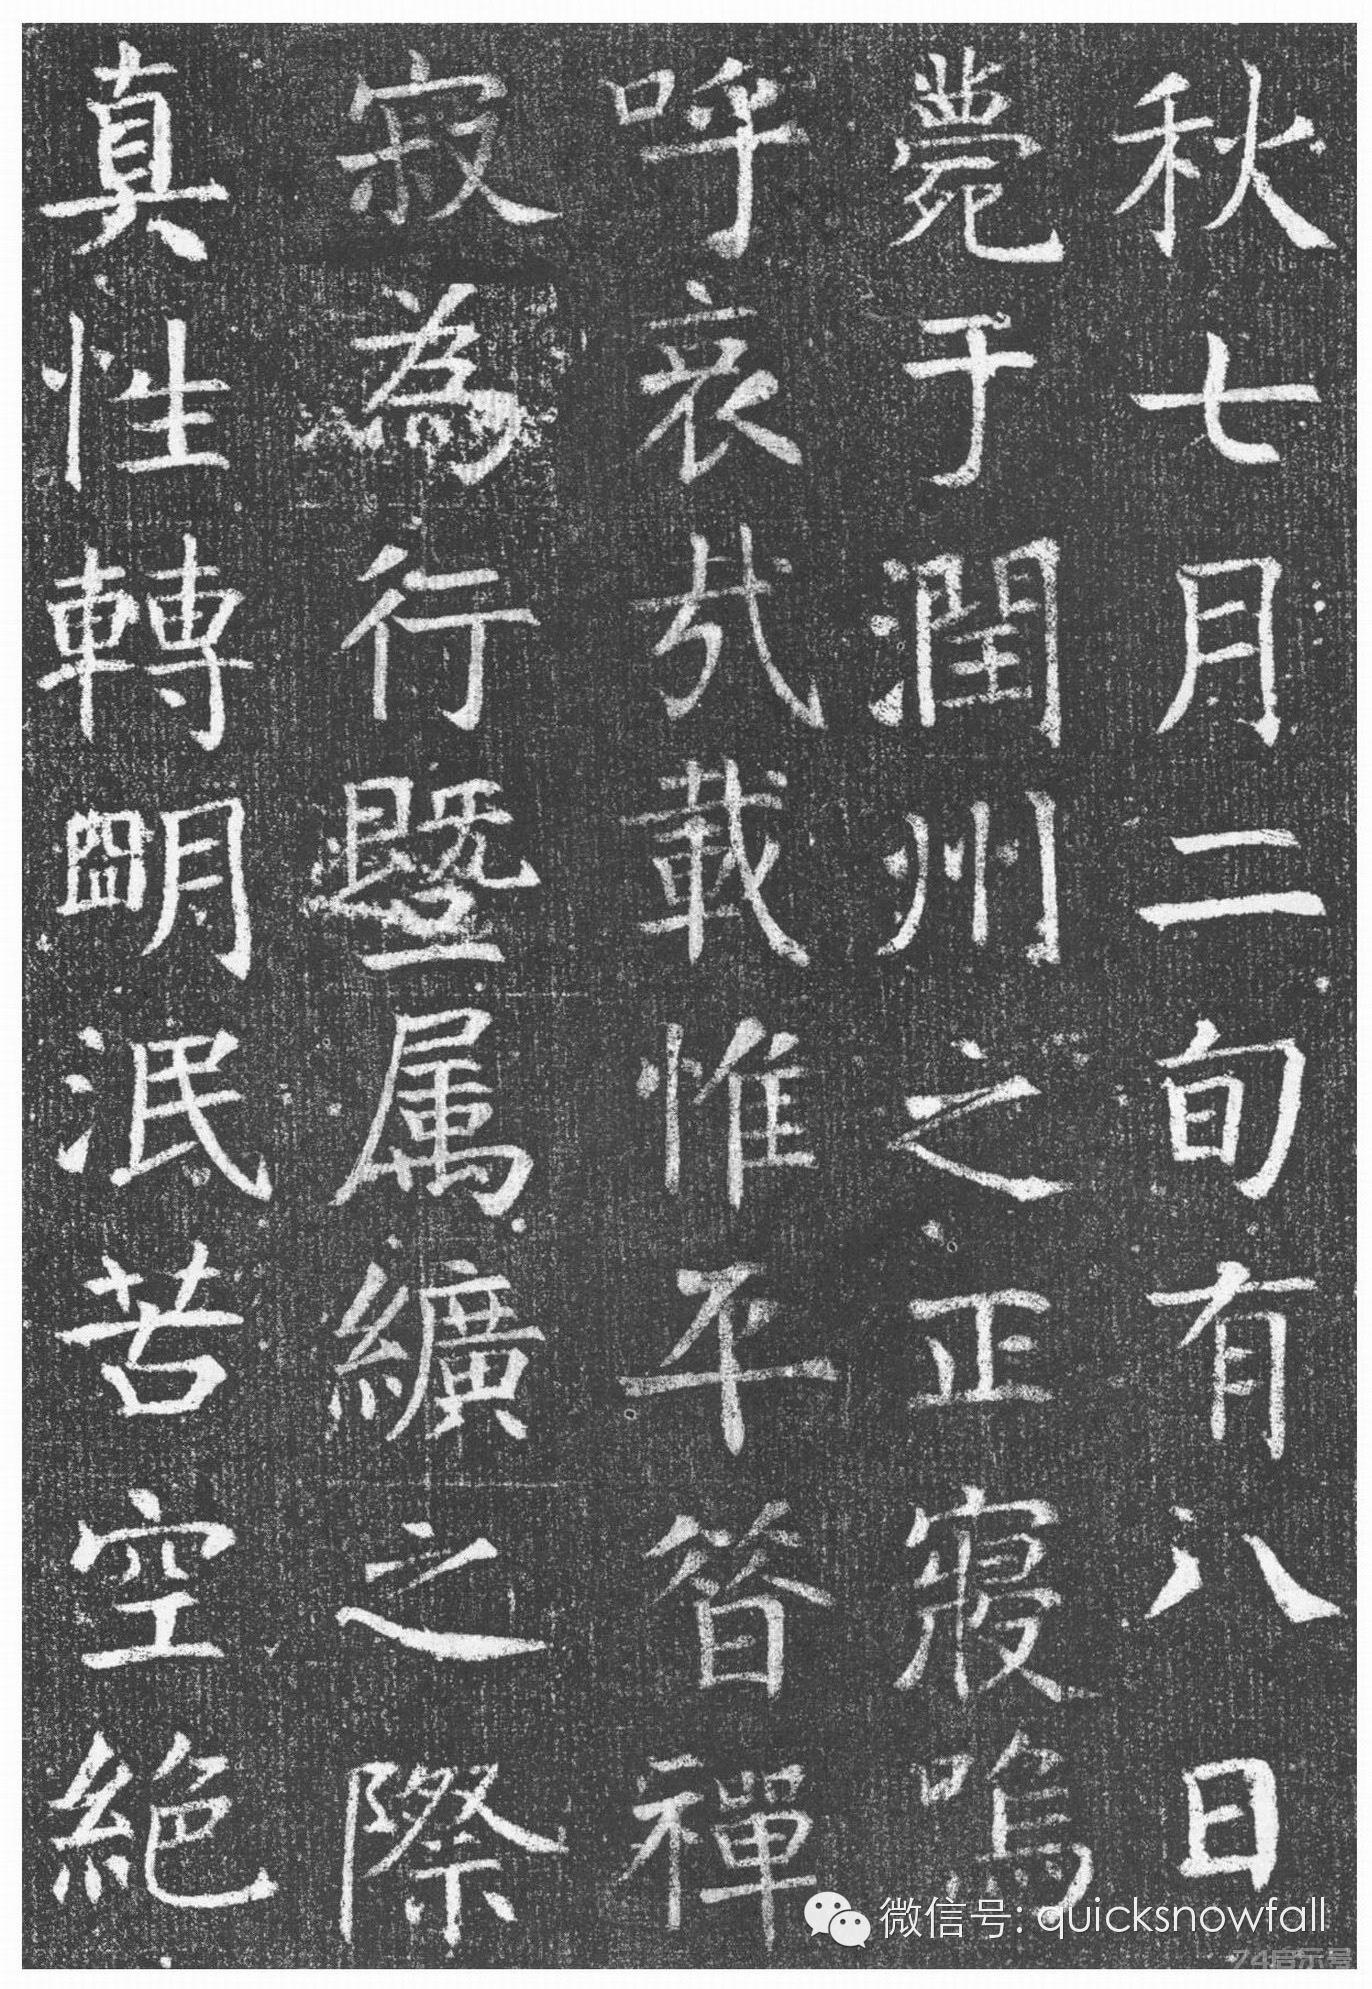 秋七月二旬有八日
薨于潤州之正寢嗚
呼哀哉載惟平昔禪
寂為行暨属纊之際
真性轉明泯苦空絕
微信号: quicksnowfall
74启示号